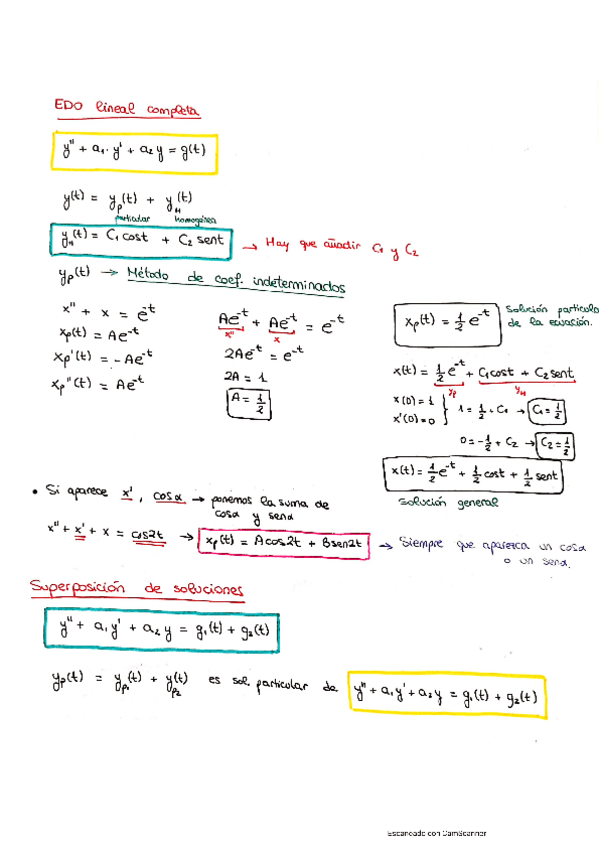 EDO lineal completa
y'' + a₁· y' + a₂ y = g(t)
y(t) = yₚ(t) + y_H(t)
particular homogénea
y_H(t) = C₁ cost + C₂ sent → Hay que añadir C₁ y C₂
yₚ(t) → Método de coef. indeterminados
x'' + x = e^-t
xₚ(t) = Ae^-t
xₚ'(t) = -Ae^-t
xₚ''(t) = Ae^-t
Ae^-t + Ae^-t = e^-t
x'' x
2Ae^-t = e^-t
2A = 1
A = 1/2
xₚ(t) = 1/2 e^-t
Solución particula
de la ecuación.
x(t) = 1/2 e^-t + C₁ cost + C₂ sent
yₚ y_H
x(0) = 1
x'(0) = 0
1 = 1/2 + C₁ → C₁ = 1/2
0 = -1/2 + C₂ → C₂ = 1/2
x(t) = 1/2 e^-t + 1/2 cost + 1/2 sent
Solución general
• Si aparece x', cosα → ponemos la suma de
cosα y senα
x'' + x' + x = cos2t → xₚ(t) = Acos2t + Bsen2t → Siempre que aparezca un cosα
o un senα.
Superposición de soluciones
y'' + a₁ y' + a₂ y = g₁(t) + g₂(t)
yₚ(t) = yₚ₁(t) + yₚ₂(t) es sol. particular de y'' + a₁ y' + a₂ y = g₁(t) + g₂(t)
Escaneado con CamScanner